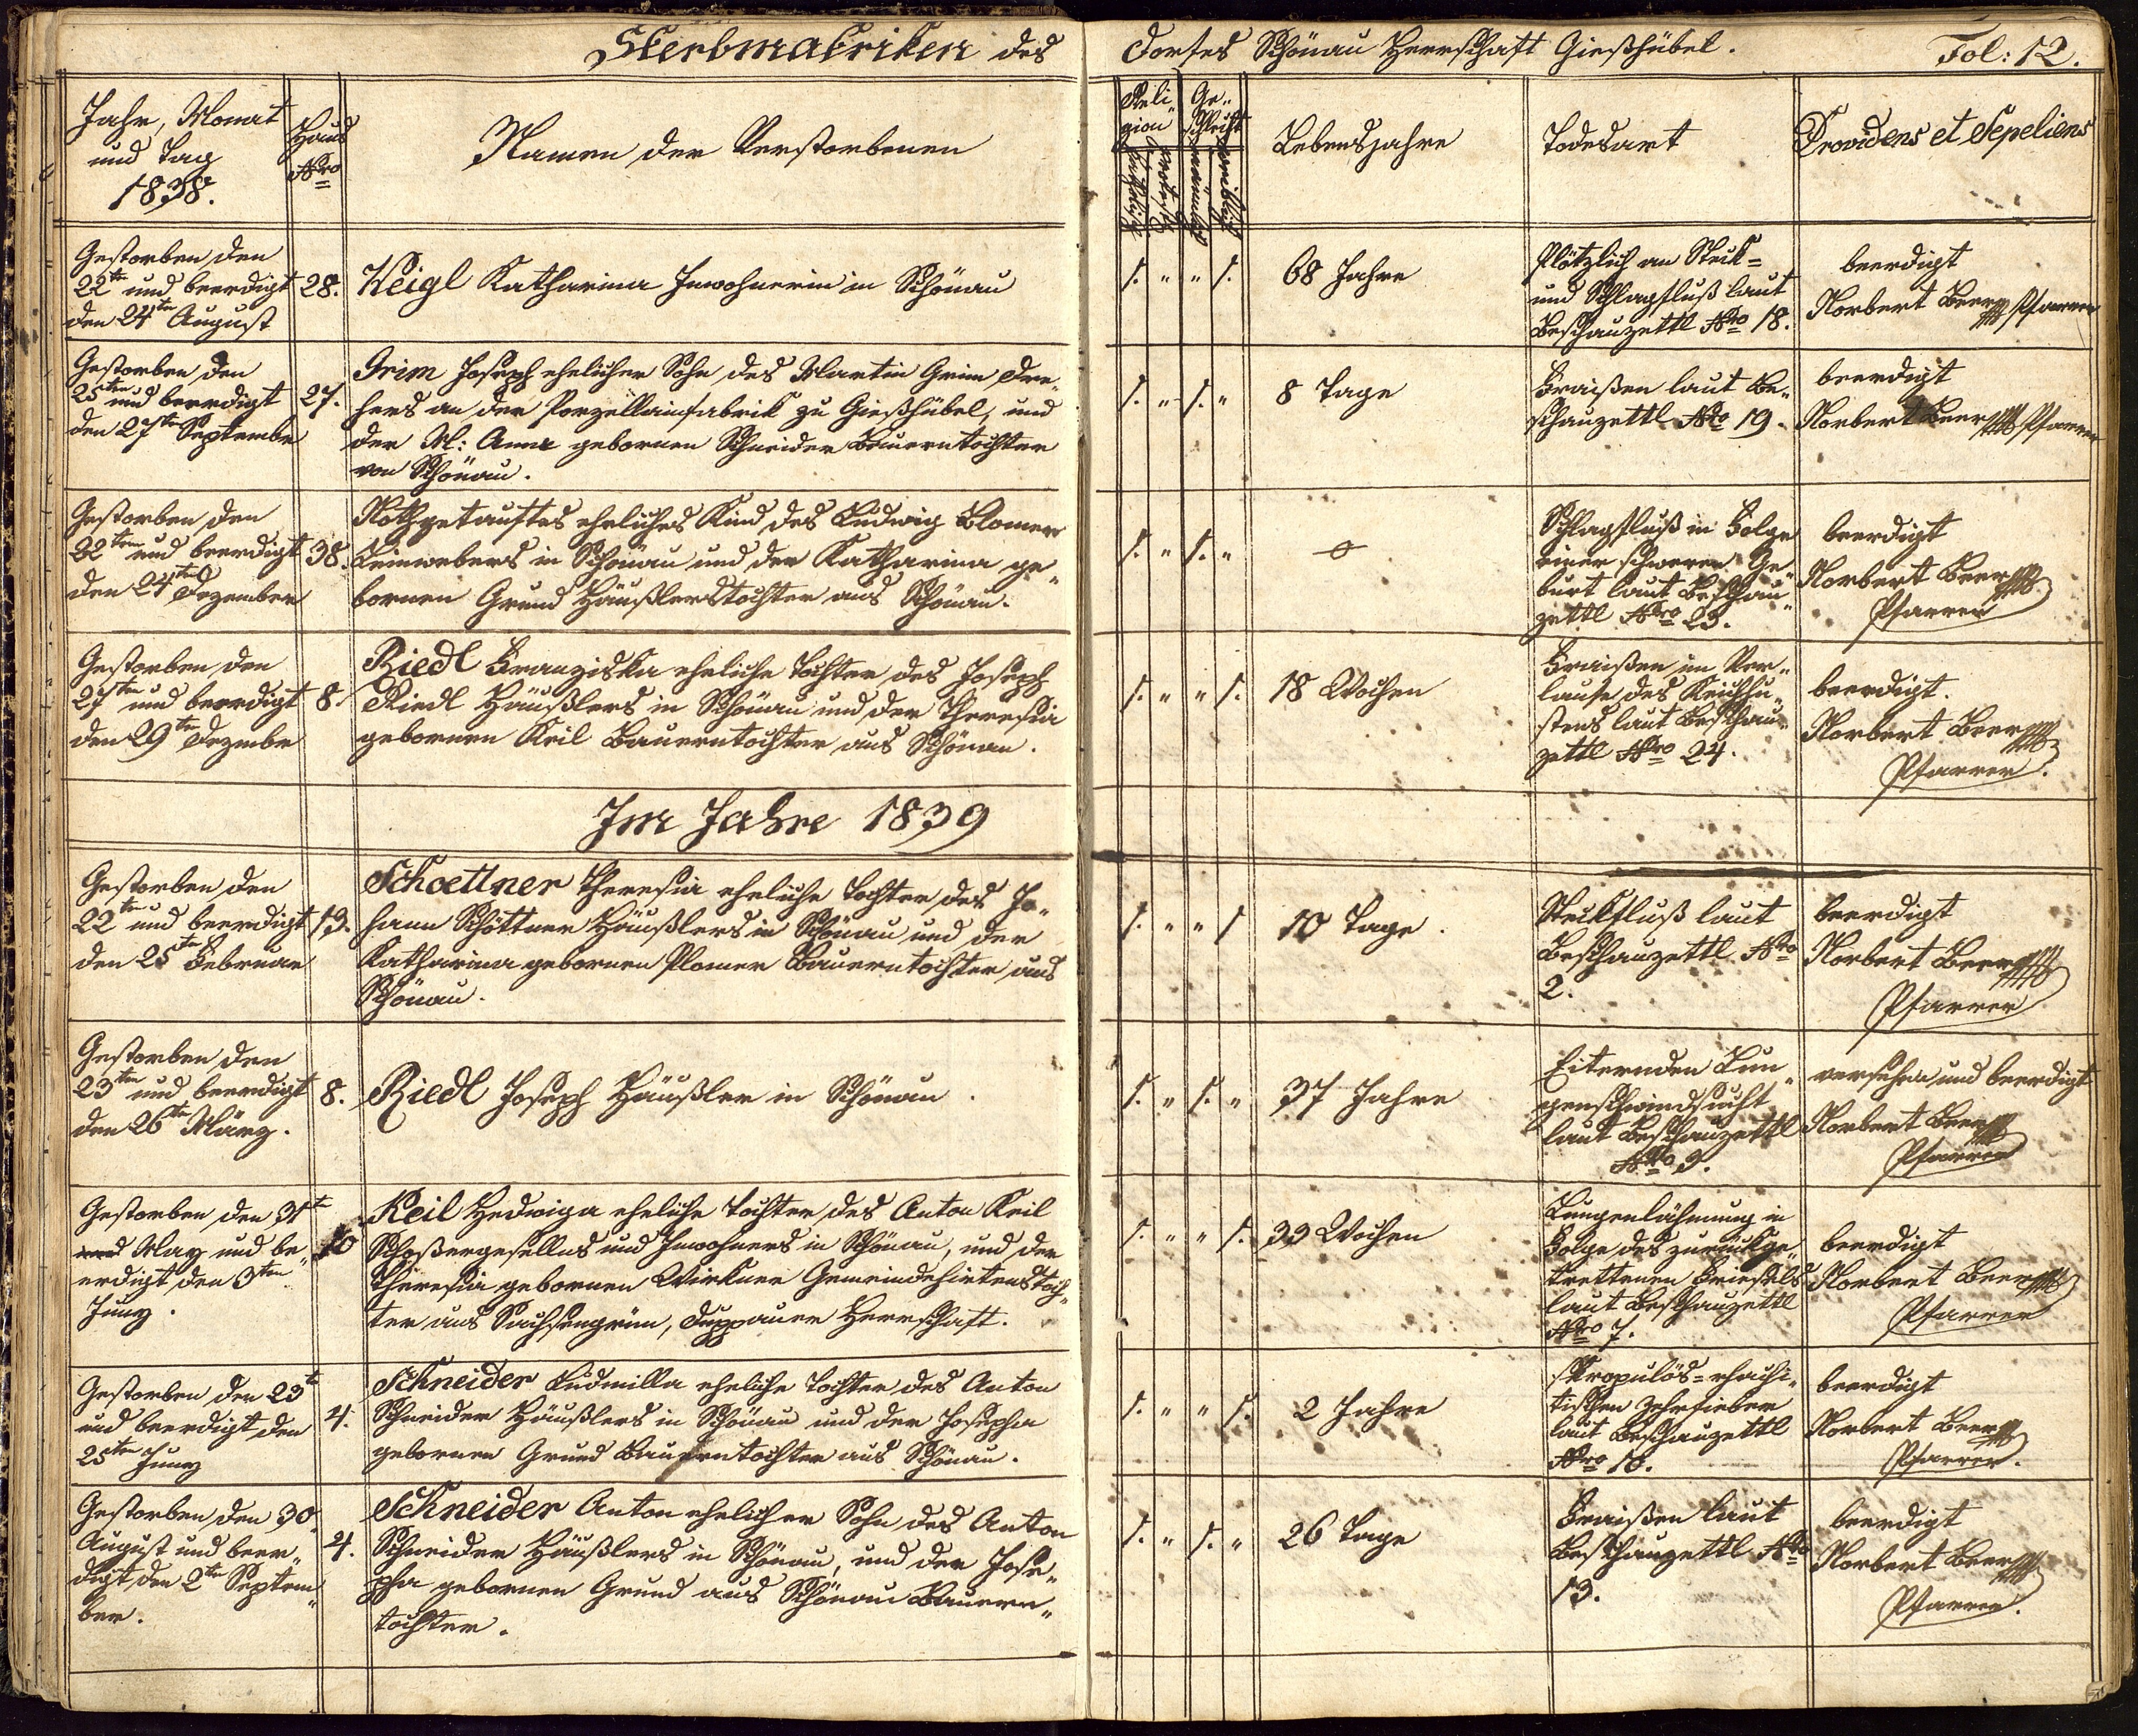 Sterbmatriken des Dorfes Schönau Herrschaft Gießhübel. Fol: 12.
Jahr, Monat
und Tag
1838.
Haus
Nro
Namen der Verstorbenen
Reli„
gion
Ge„
schlecht
katholisch
protest.
männlich
weiblich
Lebensjahre
Todesart
Providens et Sepeliens
Gestorben den
22ten und beerdigt
den 24ten August
28.
Weigl Katharina Inwohnerin in Schönau
1. " " 1.
68 Jahre
Plötzlich an Steck=
und Schlagfluß laut
Beschauzettl Nro 18.
beerdigt
Norbert Beer Pfarrer
Gestorben den
25ten und beerdigt
den 27ten Septembr
27.
Grim Joseph ehelicher Sohn des Martin Grim Dre„
hers an der Porzellainfabrik zu Gießhübel, und
der M: Anna gebornen Schneider Bauerntochter
von Schönau.
1. " 1. "
8 Tage
Fraißen laut Be„
schauzettl Nro 19.
beerdigt
Norbert Beer Pfarrer
Gestorben den
22ten und beerdigt
den 24ten Dezember
38.
Nothgetauftes eheliches Kind des Ludwig Blomer
Leinwebers in Schönau und der Katharina ge„
bornen Grund Häußlerstochter aus Schönau.
1. " 1. "
Schlagfluß in Folge
einer schweren Ge„
burt laut Beschau„
zettl Nro 23.
beerdigt
Norbert Beer
Pfarrer
Gestorben den
27ten und beerdigt
den 29ten Dezembr
8.
Riedl Franziska eheliche Tochter des Joseph
Riedl Häußlers in Schönau und der Theresia
gebornen Keil Bauerntochter aus Schönau.
1. " " 1.
18 Wochen
Fraißen im Ver„
laufe des Keichhu„
stens laut Beschau„
zettl Nro 24.
beerdigt.
Norbert Beer
Pfarrer.
Im Jahre 1839
Gestorben den
22ten und beerdigt
den 25ten Februar
13.
Schoettner Theresia eheliche Tochter des Jo„
hann Schöttner Häußlers in Schönau und der
Katharina gebornen Plomer Bauerntochter aus
Schönau.
1. " " 1
10 Tage.
Steckfluß laut
Beschauzettl Nro
2.
beerdigt
Norbert Beer
Pfarrer
Gestorben den
23ten und beerdigt
den 26ten März.
8.
Riedl Joseph Häußler in Schönau.
1. " 1. "
37 Jahre
Eiternden Lun„
genschwindsucht
laut Beschauzettl
Nro 3.
versehen und beerdigt
Norbert Beer
Pfarrer
Gestorben den 31te
May und be„
erdigt den 3ten
Juny.
10
Keil Hedwiga eheliche Tochter des Anton Keil
Schoßergesellns und Inwohners in Schönau, und der
Theresia gebornen Wirkner Gemeindehirtenstoch„
ter aus Sachsengrün, Duppauer Herrschaft.
1. " " 1.
33 Wochen
Lungenlähmung in
Folge des zurückge„
trettenen Friesels
laut Beschauzettl
Nro 7.
beerdigt
Norbert Beer
Pfarrer
Gestorben den 23te
und beerdigt den
25ten Juny
4.
Schneider Ludmilla eheliche Tochter des Anton
Schneider Häußlers in Schönau und der Josepha
gebornen Grund Bauerntochter aus Schönau.
1. " " 1.
2 Jahre
skropulös=rhachi„
tischen Zehrfieber
laut Beschauzettl
Nro 10.
beerdigt
Norbert Beer
Pfarrer.
Gestorben den 30
August und beer„
digt den 2ten Septem„
ber.
4.
Schneider Anton ehelicher Sohn des Anton
Schneider Häußlers in Schönau, und der Jose„
pha gebornen Grund aus Schönau Bauern„
tochter.
1. " 1. "
26 Tage
Fraißen laut
Beschauzettl Nro
13.
beerdigt
Norbert Beer
Pfarrer.